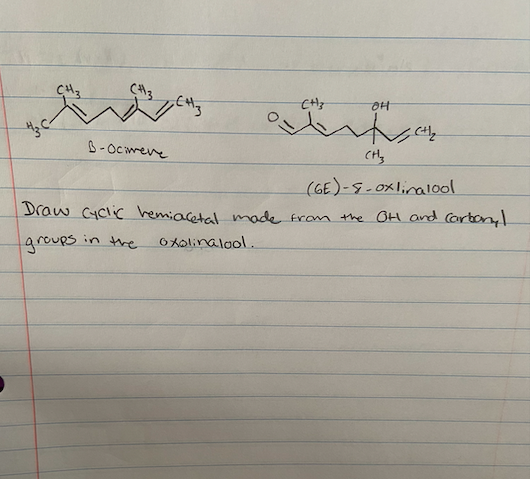 CH3 CH3 CH3
H3C
B-Ocimene
O CH3 OH CH2
CH3
(6E)-8-oxlinalool
Draw cyclic hemiacetal made from the OH and carbonyl
groups in the oxolinalool.